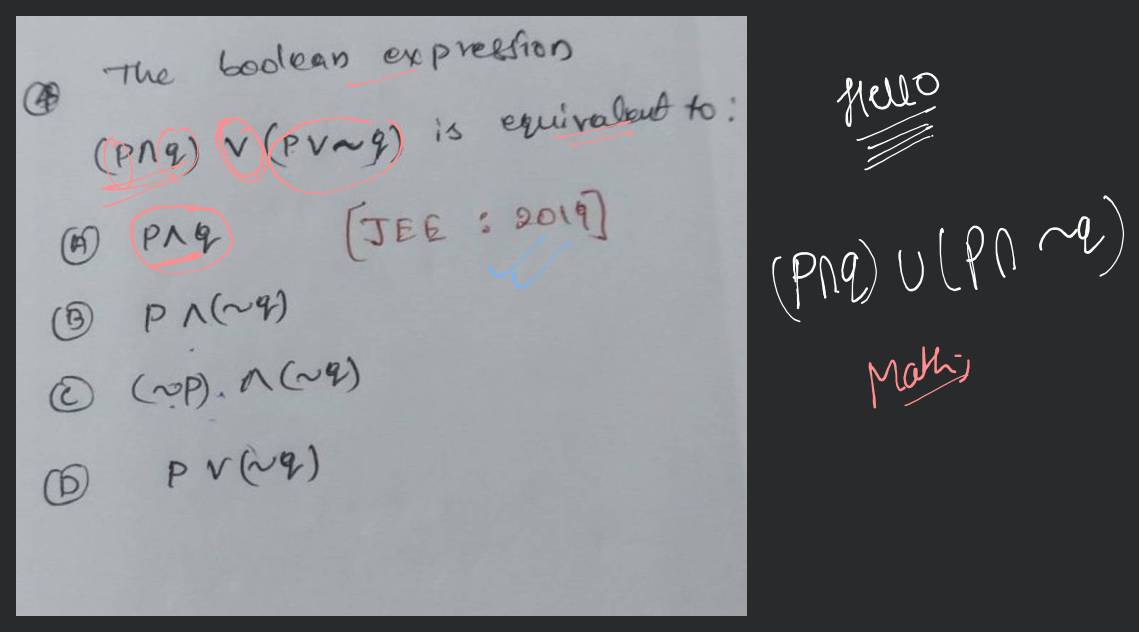 ④ The boolean expression
(P∧q) ∨ (P∨~q) is equivalent to:
Ⓐ P∧q [JEE : 2019]
Ⓑ P ∧(~q)
Ⓒ (~P). ∧(~q)
Ⓓ P ∨(~q)
Hello
(P∩q) ∪ (P∩ ~q)